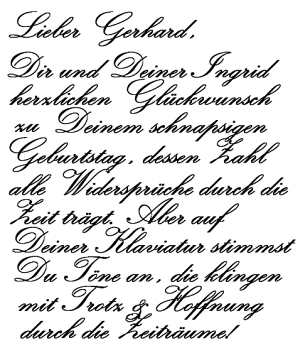 Lieber Gerhard,
Dir und Deiner Ingrid
herzlichen Glückwunsch
zu Deinem schnapsigen
Geburtstag, dessen Zahl
alle Widersprüche durch die
Zeit trägt. Aber auf
Deiner Klaviatur stimmst
Du Töne an, die klingen
mit Trotz & Hoffnung
durch die Zeiträume!